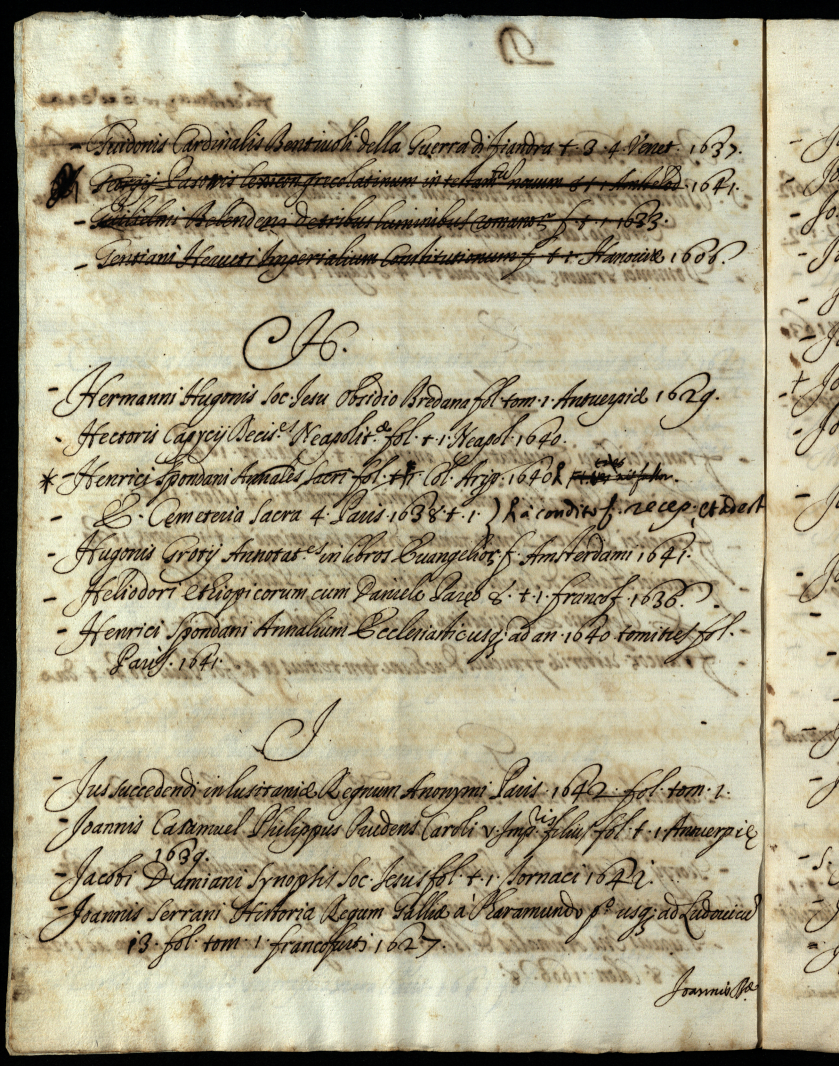 - Guidonis Cardinalis Bentiuoli della Guerra di fiandra t. 3. 4. Venet. 1637.
Georgij Pasoris lexicon grecolatinum in testam.tū nouum 8 t 1 Amstelod 1641.
- Gulielmi Belendeni de tribus luminibus romanor. f. t. 1. 1633.
- Gentiani Heructi Imperialium Constitutionum f. t. 1. Hanouiæ 1606.
H.
- Hermanni Hugonis Soc. Jesu Obsidio Bredana fol. tom. 1. Antuerpiæ 1629.
- Hectoris Capycij Decis.es Neapolit.æ fol. t. 1. Neapol. 1640.
* - Henrici Spondani Annales Sacri fol. t. Col. Arig. 1640
- E. Cemeteria Sacra 4. Paris 1638. t. 1. } à condito f. recep.
- Hugonis Grotij Annotat.es in libros Euangelior. f. Amsterdami 1641.
- Heliodori Ethiopicorum cum Daniele Pareo 8. t. 1. francof. 1636.
- Henrici Spondani Annalium Ecclesiastic usq; ad an. 1640 tomi tres fol.
Paris. 1641.
J
- Jus succedendi in lusitaniæ Regnum Anonymi Paris. 1642. fol. tom. 1.
- Joannis Caramuel Philippus Prudens Caroli v. Imp.ris filius fol. t. 1 Antuerpiæ
1639.
- Jacobi Damiani Synopsis Soc. Jesus fol. t. 1. Tornaci 1642.
- Joannis Serrani Historia Regum Galliæ à Pharamundo p.o usq; ad Ludouicū
13. fol. tom. 1. francofurti 1627.
Joannis Bæ